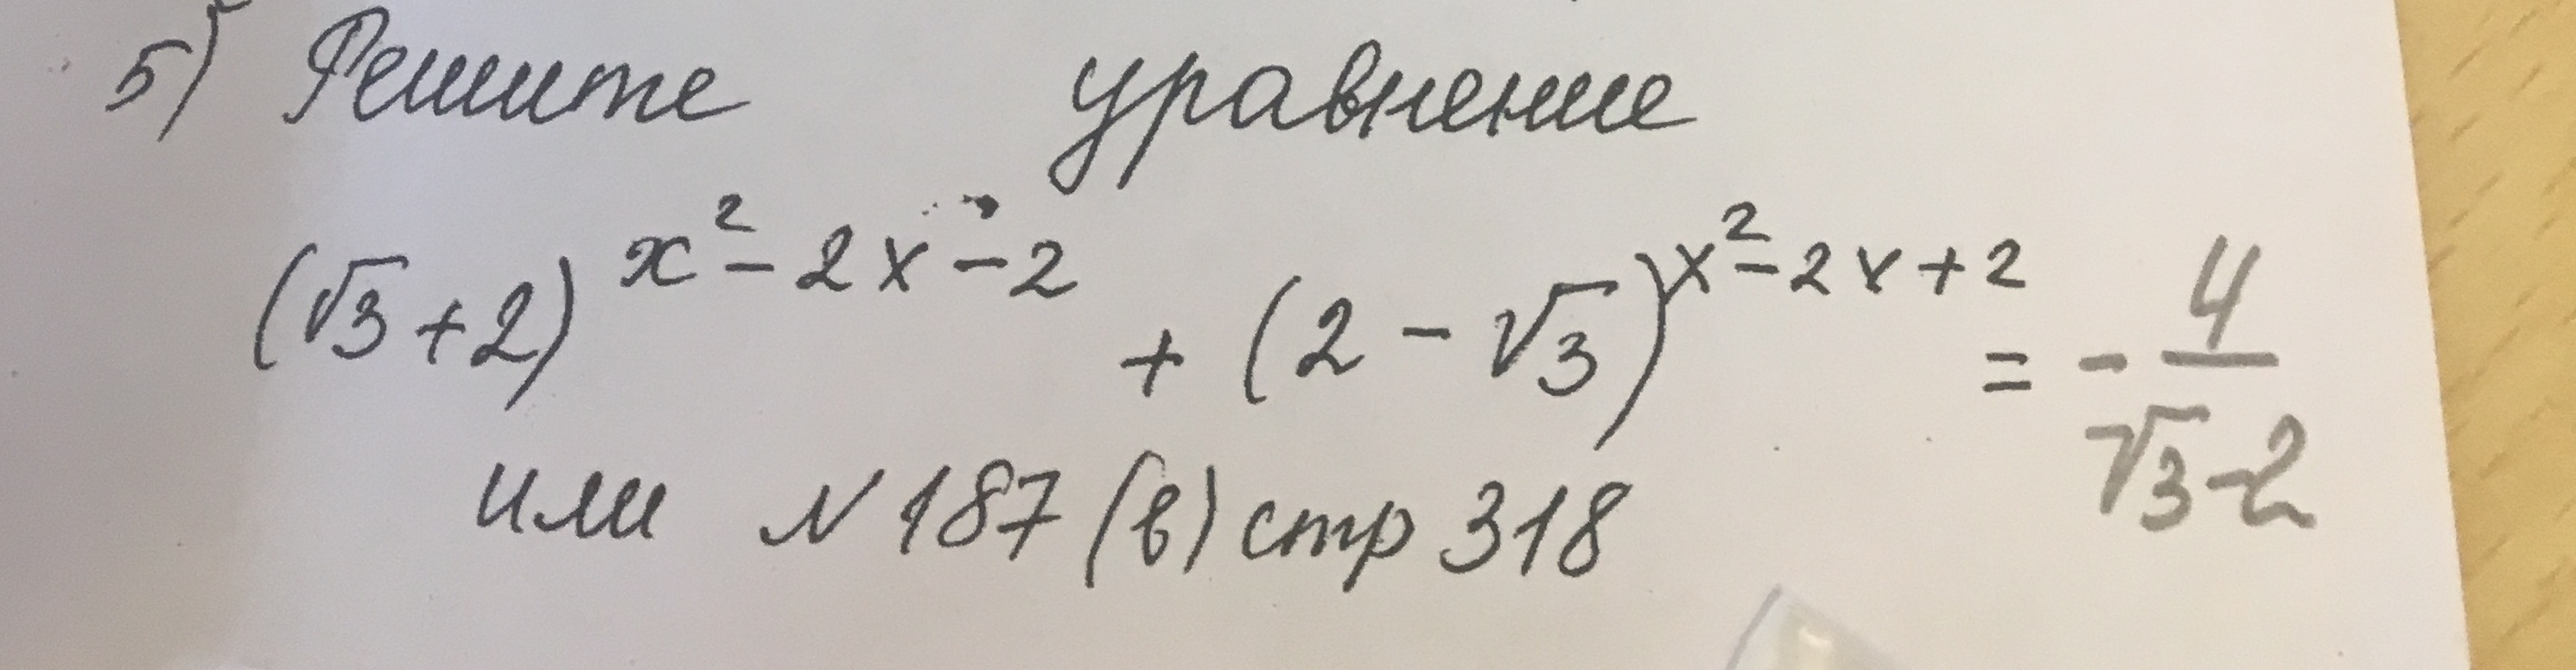 5) Решите уравнение
(√3+2)^(x²-2x-2) + (2-√3)^(x²-2x+2) = -4/(√3-2)
или N187(в) стр 318